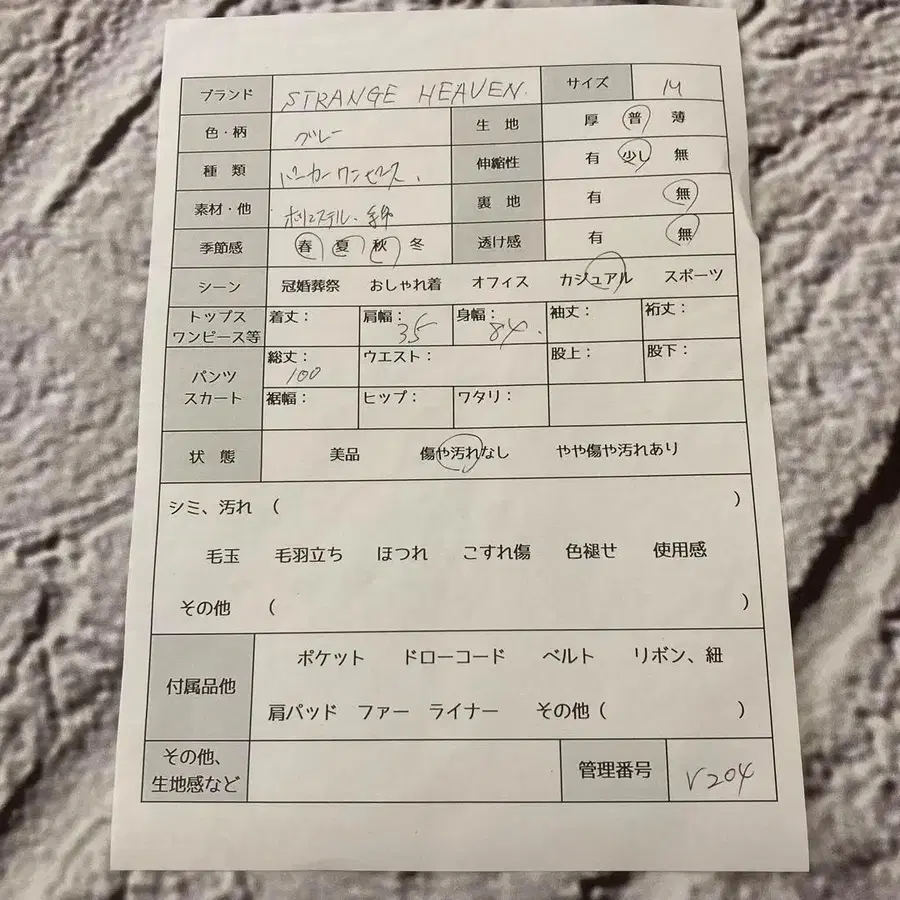 ブランド STRANGE HEAVEN. サイズ M
色・柄 グレー 生 地 厚 普 薄
種 類 パーカーワンピース. 伸縮性 有 少し 無
素材・他 ポリエステル、綿 裏 地 有 無
季節感 春 夏 秋 冬 透け感 有 無
シーン 冠婚葬祭 おしゃれ着 オフィス カジュアル スポーツ
トップス ワンピース等 着丈： 肩幅：35 身幅：84. 袖丈： 裄丈：
パンツ スカート 総丈：100 ウエスト： 股上： 股下：
裾幅： ヒップ： ワタリ：
状 態 美品 傷や汚れなし やや傷や汚れあり
シミ、汚れ （ ）
毛玉 毛羽立ち ほつれ こすれ傷 色褪せ 使用感
その他 （ ）
付属品他 ポケット ドローコード ベルト リボン、紐
肩パッド ファー ライナー その他（ ）
その他、
生地感など 管理番号 V204